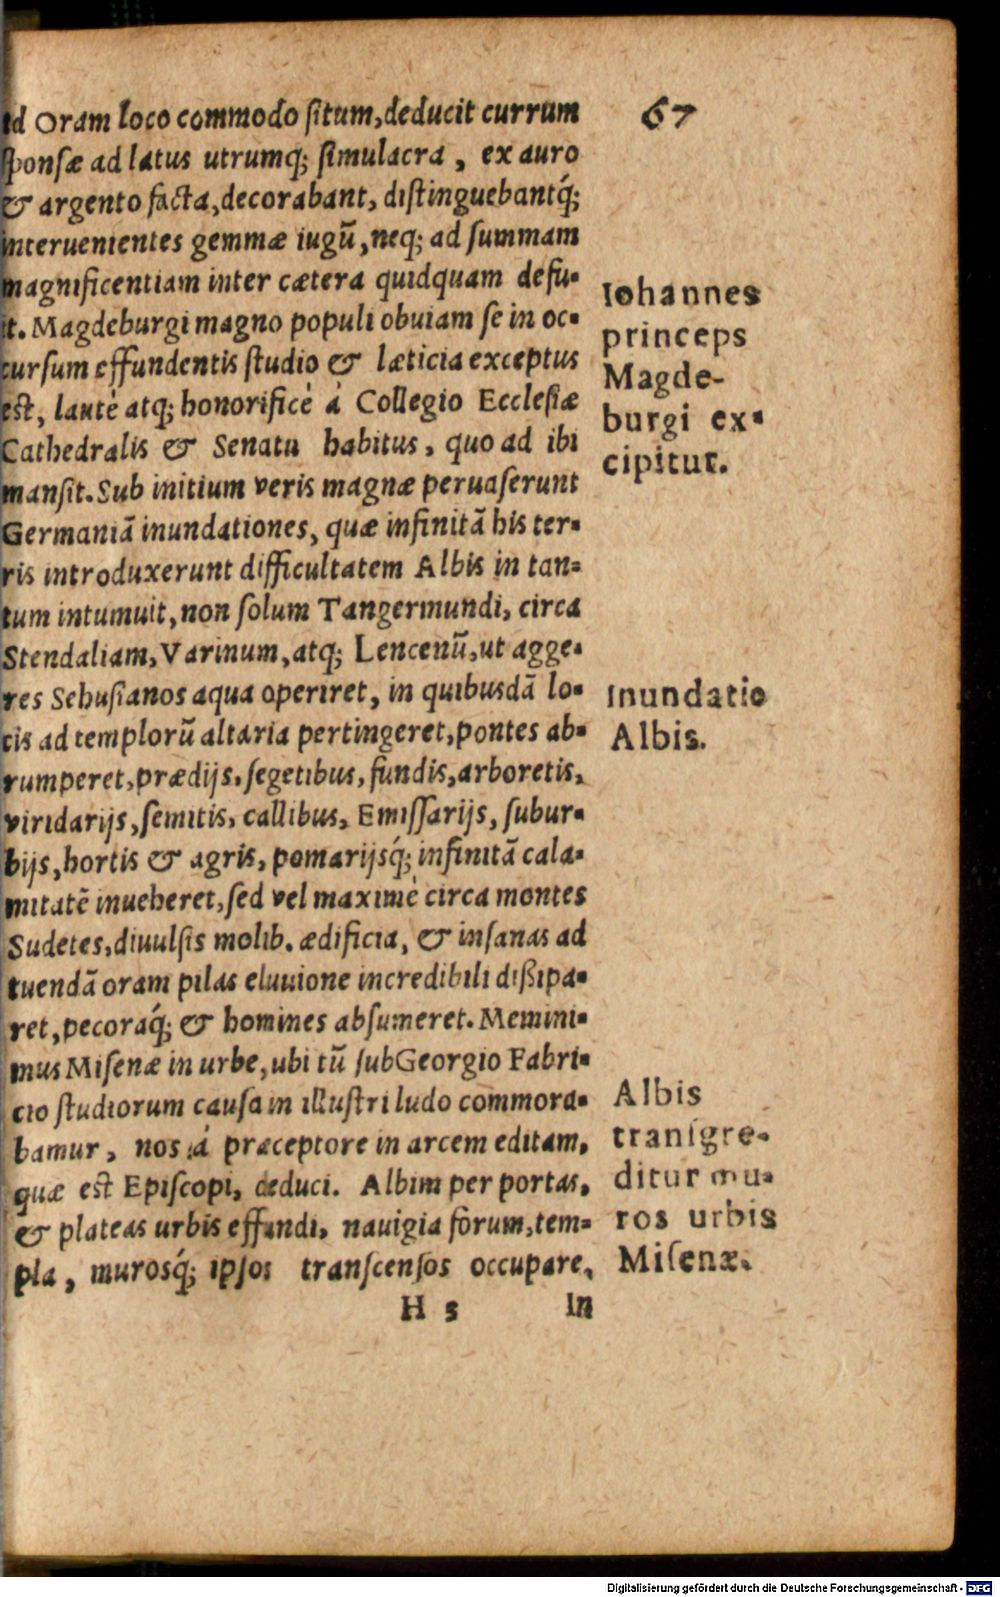 67
ad Oram loco commodo ſitum, deducit currum
ſponſæ ad latus utrumq; ſimulacra, ex auro
& argento facta, decorabant, diſtinguebantq́;
interuenientes gemmæ iugũ, neq; ad ſummam
magnificentiam inter cætera quidquam defu-
it. Magdeburgi magno populi obuiam ſe in oc-
curſum effundentis ſtudio & læticia exceptus
eſt, lautè atq; honorificè á Collegio Eccleſiæ
Cathedralis & Senatu habitus, quo ad ibi
manſit. Sub initium veris magnæ peruaſerunt
Germaniã inundationes, quæ infinitã his ter-
ris introduxerunt difficultatem Albis in tan-
tum intumuit, non ſolum Tangermundi, circa
Stendaliam, Varinum, atq; Lencenũ, ut agge-
res Sehuſianos aqua operiret, in quibusdã lo-
cis ad templorũ altaria pertingeret, pontes ab-
rumperet, prædijs, ſegetibus, fundis, arboretis,
viridarijs, ſemitis, callibus, Emiſſarijs, ſubur-
bijs, hortis & agris, pomarijsq́; infinitã cala-
mitatẽ inueheret, ſed vel maximè circa montes
Sudetes, diuulſis molib. ædificia, & inſanas ad
tuendã oram pilas eluuione incredibili dißipa-
ret, pecoraq́; & homines abſumeret. Memini-
mus Miſenæ in urbe, ubi tũ ſub Georgio Fabri-
cio ſtudiorum cauſa in illuſtri ludo commora-
bamur, nos á præceptore in arcem editam,
quæ eſt Epiſcopi, deduci. Albim per portas,
& plateas urbis effundi, nauigia forum, tem-
pla, murosq́; ipſos tranſcenſos occupare,
H 5 In
Iohannes
princeps
Magde-
burgi ex-
cipitur.
Inundatio
Albis.
Albis
tranſgre-
ditur mu-
ros urbis
Miſenæ.
Digitalisierung gefördert durch die Deutsche Forschungsgemeinschaft - DFG